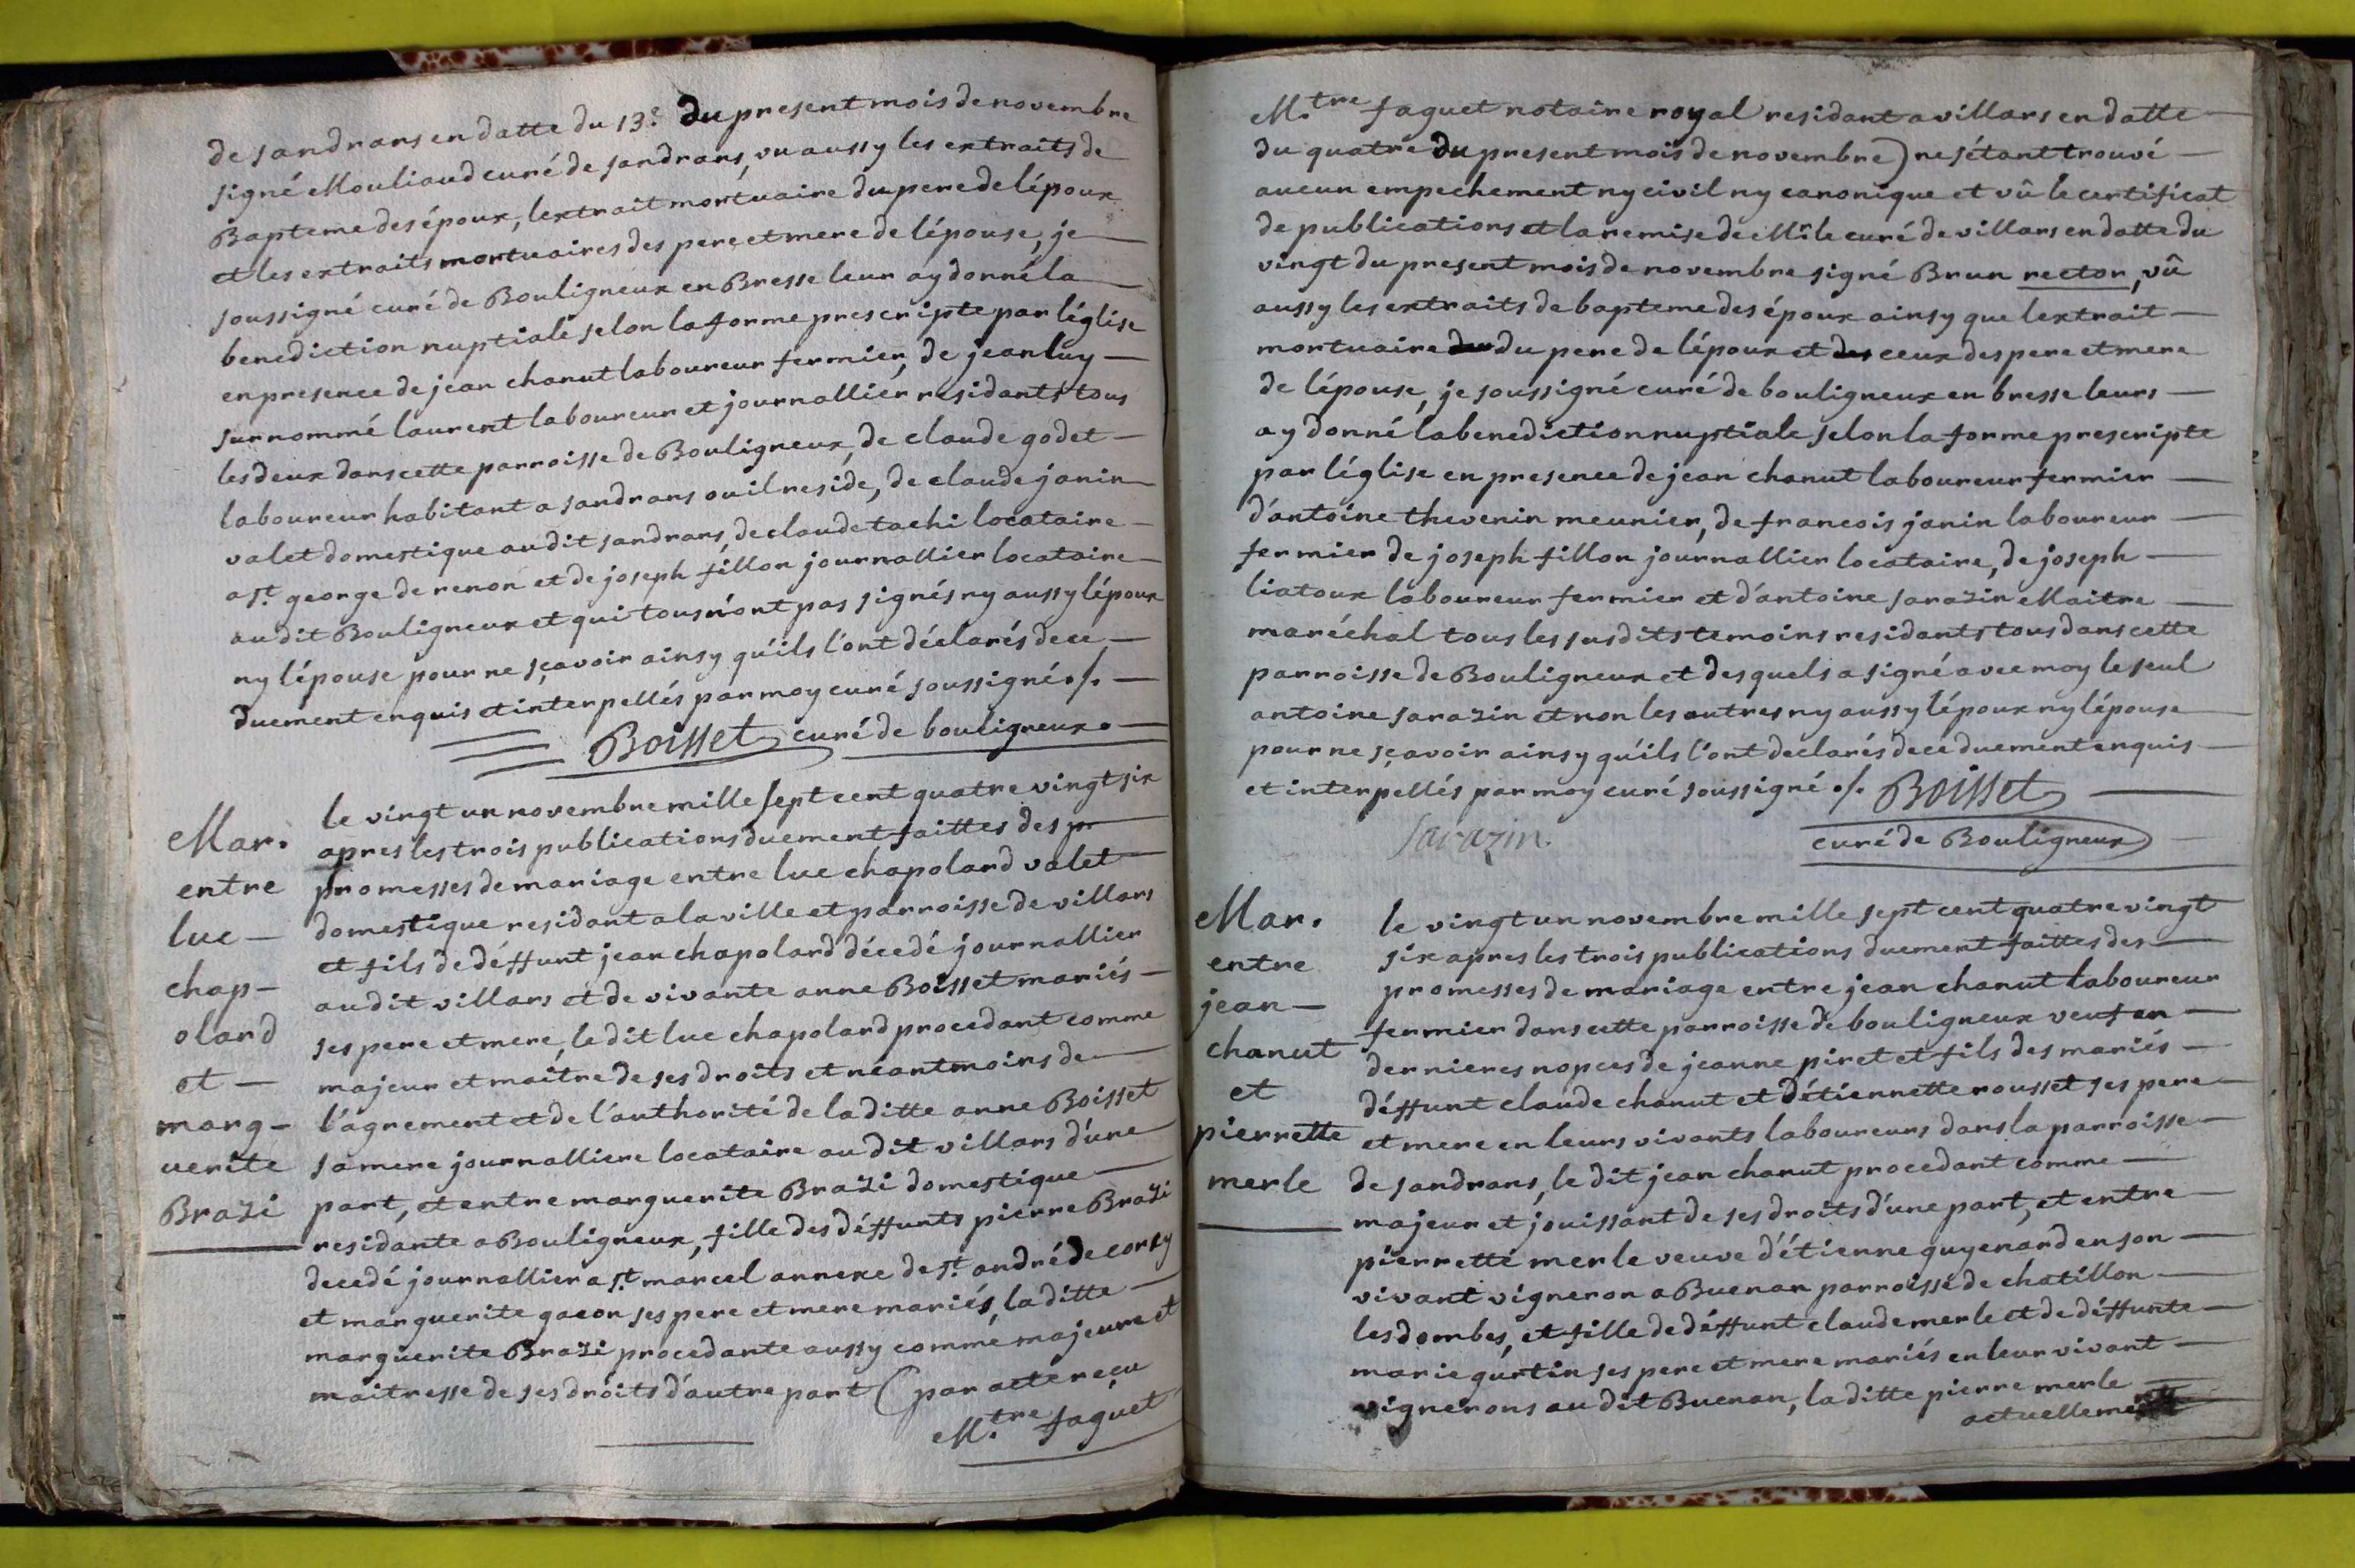 de sandrans en datte du 13.e du present mois de novembre
signé Mouliaud curé de sandrans, vu aussy les extraits de
Bapteme des époux, lextrait mortuaire du pere de lépoux
et les extraits mortuaires des pere et mere de lépouse, je
soussigné curé de Bouligneux en Bresse leur ay donné la
benediction nuptiale selon la forme prescripte par léglise
en presence de jean chanut laboureur fermier, de jean luy
surnommé laurent laboureur et journallier residants tous
les deux dans cette parroisse de Bouligneux, de claude godet
laboureur habitant a sandrans ou il reside, de claude janin
valet domestique au dit sandrans, de claude tachi locataire
a st. george de renon et de joseph fillon journallier locataire
au dit Bouligneux et qui tous n'ont pas signés ny aussy lépoux
ny lépouse pour ne sçavoir ainsy qu'ils l'ont déclarés de ce
duement enquis et interpellés par moy curé soussigné ./.
Boisset curé de bouligneux.
Mar.
entre
luc
chap-
olard
et
marg-
uerite
Brazi
le vingt un novembre mille sept cent quatre vingt six
apres les trois publications duement faittes des pr
promesses de mariage entre luc chapolard valet
domestique residant a la ville et parroisse de villars
et fils de déffunt jean chapolard décedé journallier
au dit villars et de vivante anne Boisset mariés
ses pere et mere, le dit luc chapolard procedant comme
majeur et maître de ses droits et néantmoins de
l'agrement et de l'authorité de la ditte anne Boisset
sa mere journalliere locataire au dit villars d'une
part, et entre marguerite Brazi domestique
residante a Bouligneux, fille des déffunts pierre Brazi
decedé journallier a st. marcel annexe de st. andré de corsy
et marguerite gacon ses pere et mere mariés, la ditte
marguerite Brazi procedante aussy comme majeure et
maitresse de ses droits d'autre part (par acte reçu
M.tre faguet
M.tre faguet notaire royal residant a villars en datte
du quatre du present mois de novembre) ne s'étant trouvé
aucun empechement ny civil ny canonique et vû le certificat
de publications et la remise de Mr. le curé de villars en datte du
vingt du present mois de novembre signé Brun rector, vû
aussy les extraits de bapteme des époux ainsy que lextrait
mortuaire du pere de lépoux et ceux des pere et mere
de lépouse, je soussigné curé de bouligneux en bresse leurs
ay donné la benediction nuptiale selon la forme prescripte
par léglise en presence de jean chanut laboureur fermier
d'antoine thevenin meunier, de francois janin laboureur
fermier de joseph fillon journallier locataire, de joseph
liatoux laboureur fermier et d'antoine sarazin Maitre
maréchal tous les susdits temoins residants tous dans cette
parroisse de Bouligneux et desquels a signé avec moy le seul
antoine sarazin et non les autres ny aussy lépoux ny lépouse
pour ne sçavoir ainsy qu'ils l'ont declarés de ce duement enquis
et interpellés par moy curé soussigné ./. Boisset
sarazin.
curé de Bouligneux
Mar.
entre
jean
chanut
et
pierrette
merle
le vingt un novembre mille sept cent quatre vingt
six apres les trois publications duement faittes des
promesses de mariage entre jean chanut laboureur
fermier dans cette parroisse de bouligneux veuf en
dernieres nopces de jeanne piret et fils des mariés
déffunt claude chanut et d'étiennette rousset ses pere
et mere en leurs vivants laboureurs dans la parroisse
de sandrans, le dit jean chanut procedant comme
majeur et jouissant de ses droits d'une part, et entre
pierrette merle veuve d'étienne guyenard en son
vivant vigneron a Buenan parroisse de chatillon
les dombes, et fille de déffunt claude merle et de déffunte
marie gurtin ses pere et mere mariés en leur vivant
vignerons au dit Buenan, la ditte pierre merle
actuellement